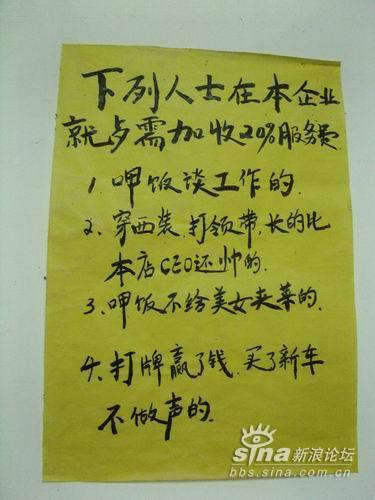 下列人士在本企业
就歺需加收20%服务费
1.呷饭谈工作的.
2、穿西装.打领带,长的比
本店CEO还帅的.
3、呷饭不给美女夹菜的.
4、打牌赢了钱.买了新车
不做声的.
sina新浪论坛
bbs.sina.com.cn